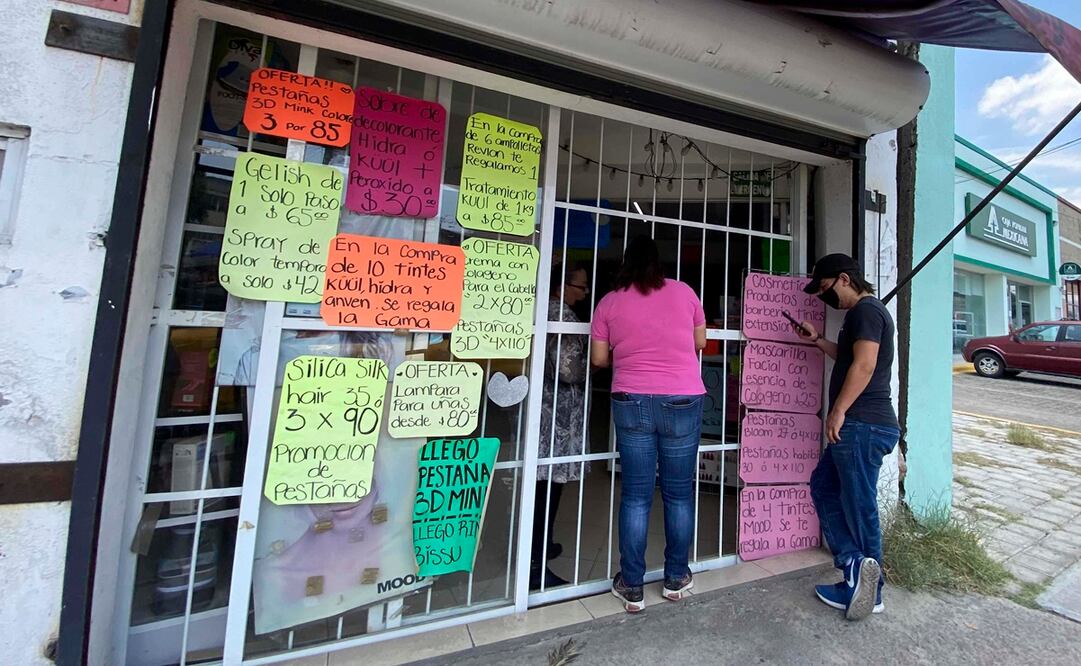 OFERTA!!
Pestañas
3D Mink Colore
3 Por 85
Sobre de
decolorante
Hidra ó
KUUL +
Peroxido a
$ 30.00
En la compra
de 6 ampolletas
Revlon te
Regalamos 1
Tratamiento
KUUL de 1kg
a $85.00
Gelish de
1 Solo Paso
a $65.00
Spray de
color tempora
a solo $42
En la Compra
de 10 tintes
KUUL, hidra Y
anven. se regala
la Gama
OFERTA
crema con
Colageno
Para el Cabello
2 x 80.00
Pestañas
3D "4x110"
Silica Silk
hair 35 ó
3 x 90
Promocion
de
Pestañas
OFERTA
Lampara
Para uñas
desde $80.00
LLEGO
PESTAÑA
3D MINK
LLEGO RIM
BISSU
MOOD
Cosmetic
Productos de
barberia tintes
extension
Mascarilla
Facial con
esencia de
Colageno $25
Pestañas
Bloom 27 ó 4x100
Pestañas habibi
30 ó 4x110
En la Compra
de 4 tintes
MOOD. Se te
regala la Gama
CAJA POPULAR
MEXICANA